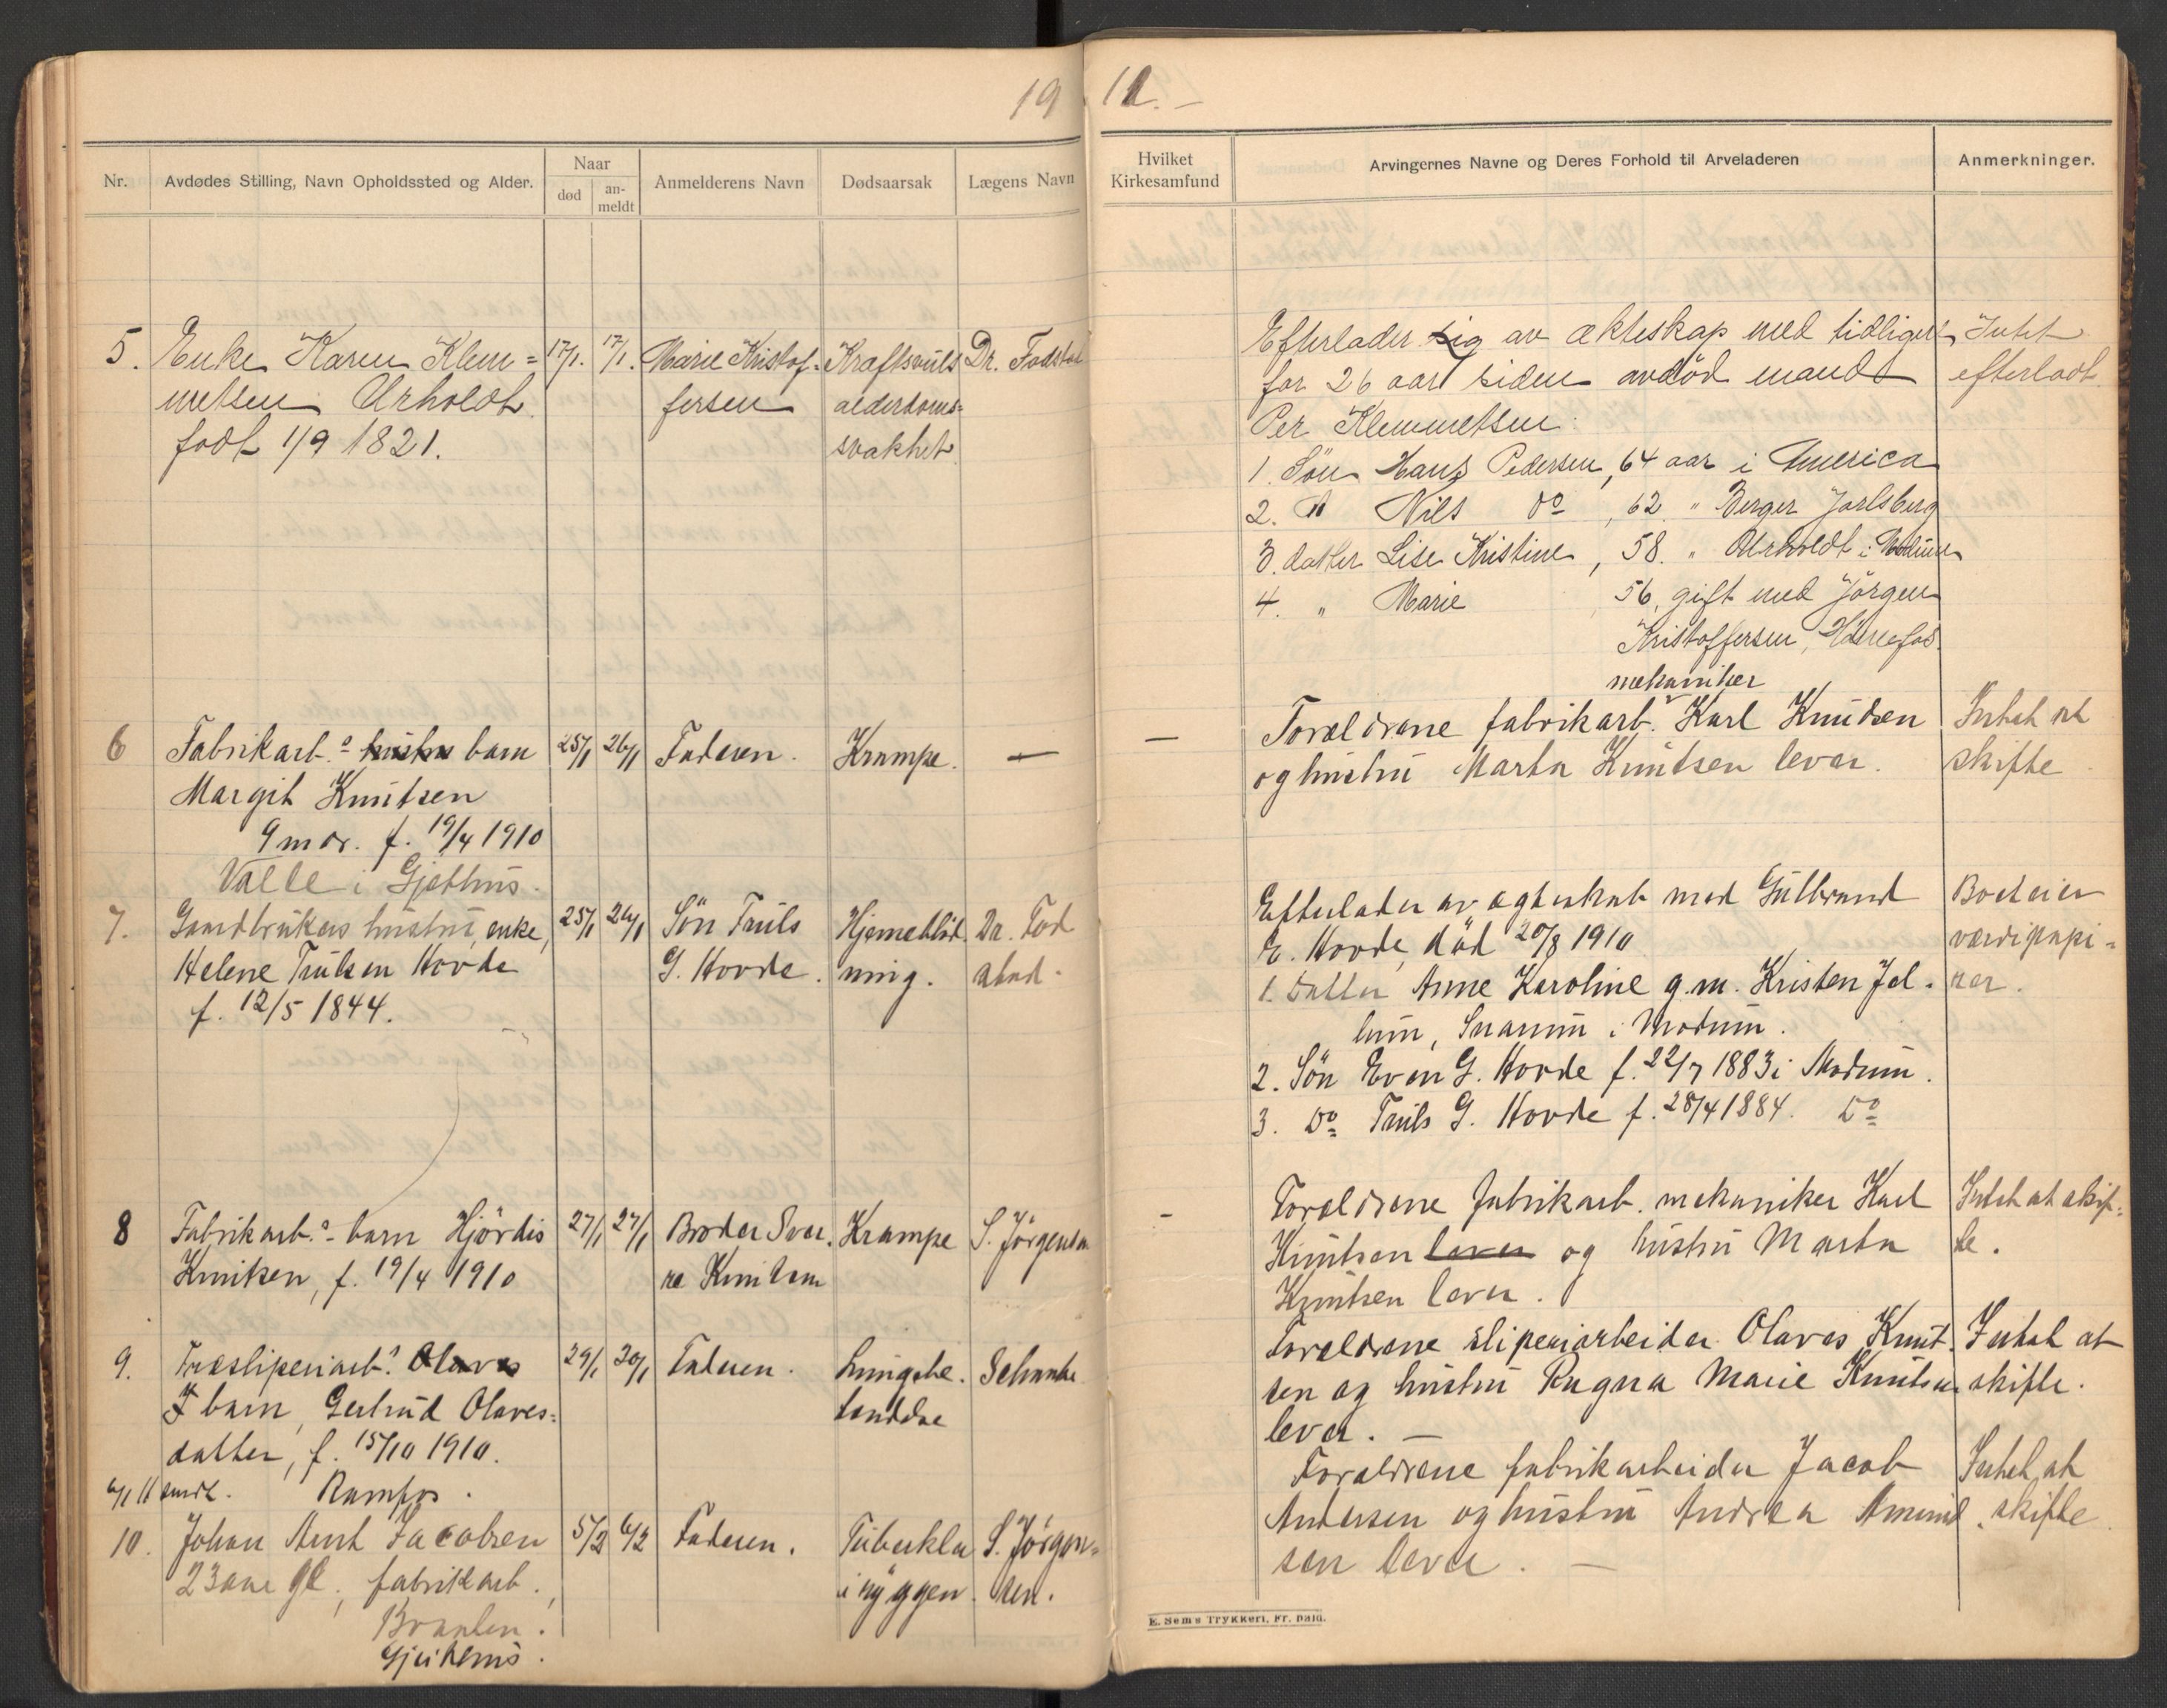 19 11.
Nr.
Avdødes Stilling, Navn Opholdssted og Alder.
Naar
død
an-
meldt
Anmelderens Navn
Dødsaarsak
Lægens Navn
Hvilket
Kirkesamfund
Arvingernes Navne og Deres Forhold til Arveladeren
Anmerkninger.
5. Enke Karen Klem= 17/1. 17/1. Marie Kristof- Kraftsvuls Dr. Fodstad
metsen Urholdt fersen alderdoms=
født 1/9 1821. svakhet
Efterlader sig av ekteskap med tidligere Intet
for 26 aar siden avdød mand efterladt
Per Klemmetsen
1. Søn Hans Pedersen, 64 aar i America
2. " Nils do , 62 " Berger Jarlsberg
3. datter Lise Kristine, 58. " Urholdt i Modum
4. " Marie 56, gift med Jörgen
Kristoffersen,
6 Fabrikarb.s hustru barn 25/1 26/1 Faderen. Krampe. —
Margit Knutsen
9 mdr. f. 19/4 1910
Valle i Gjethus.
mekaniker
— Forældrene fabrikarb. Karl Knudsen Intet at
og hustru Marta Knutsen lever. skifte
7. Gaardbrukers hustru, enke, 25/1 26/1 Søn Truls Hjerneblød Dr. Fod
Helene Trulsen Hovde G. Hovde. ning. stad.
f. 12/5 1844.
Efterlader av ægteskab med Gulbrand Boet eier
E. Hovde, död 20/8 1910 værdipapi=
1. Datter Anne Karoline g.m. Kristen Jel- rer.
lum, Snarum i Modum.
2. Sön Even G. Hovde f. 22/7 1883 i Modum.
3. Do Truls G. Hovde f. 28/4 1884. Do
8 Fabrikarb.s barn Hjördis 27/1 27/1 Broder Sver- Krampe S. Jörgensen
Knutsen, f. 19/4 1910 re Knutsen
- Forældrene fabrikarb. mekaniker Karl Intet at skif-
Knutsen lever og hustru Marta te.
Knutsen lever.
9. Træsliperiarb.s Olaves 29/1 30/1 Faderen. Lungebe- Schanke
barn, Gertrud Olaves= tendelse
datter, f. 15/10 1910.
Ramfos.
Forældrene sliperiarbeider Olaves Knut- Intet at
sen og hustru Ragna Marie Knutsen skifte.
lever. —
10. Johan Arnt Jacobsen 5/2 6/2 Faderen. Tuberkler S. Jörgen=
23 aar gl., fabrikarb., i ryggen. sen.
Braaten.
Gjeithus.
Forældrene fabrikarbeider Jacob Intet at
Andersen og hustru Andrea Amund skifte
sen lever. —
E. Sem's Trykkeri, Fr. hald.